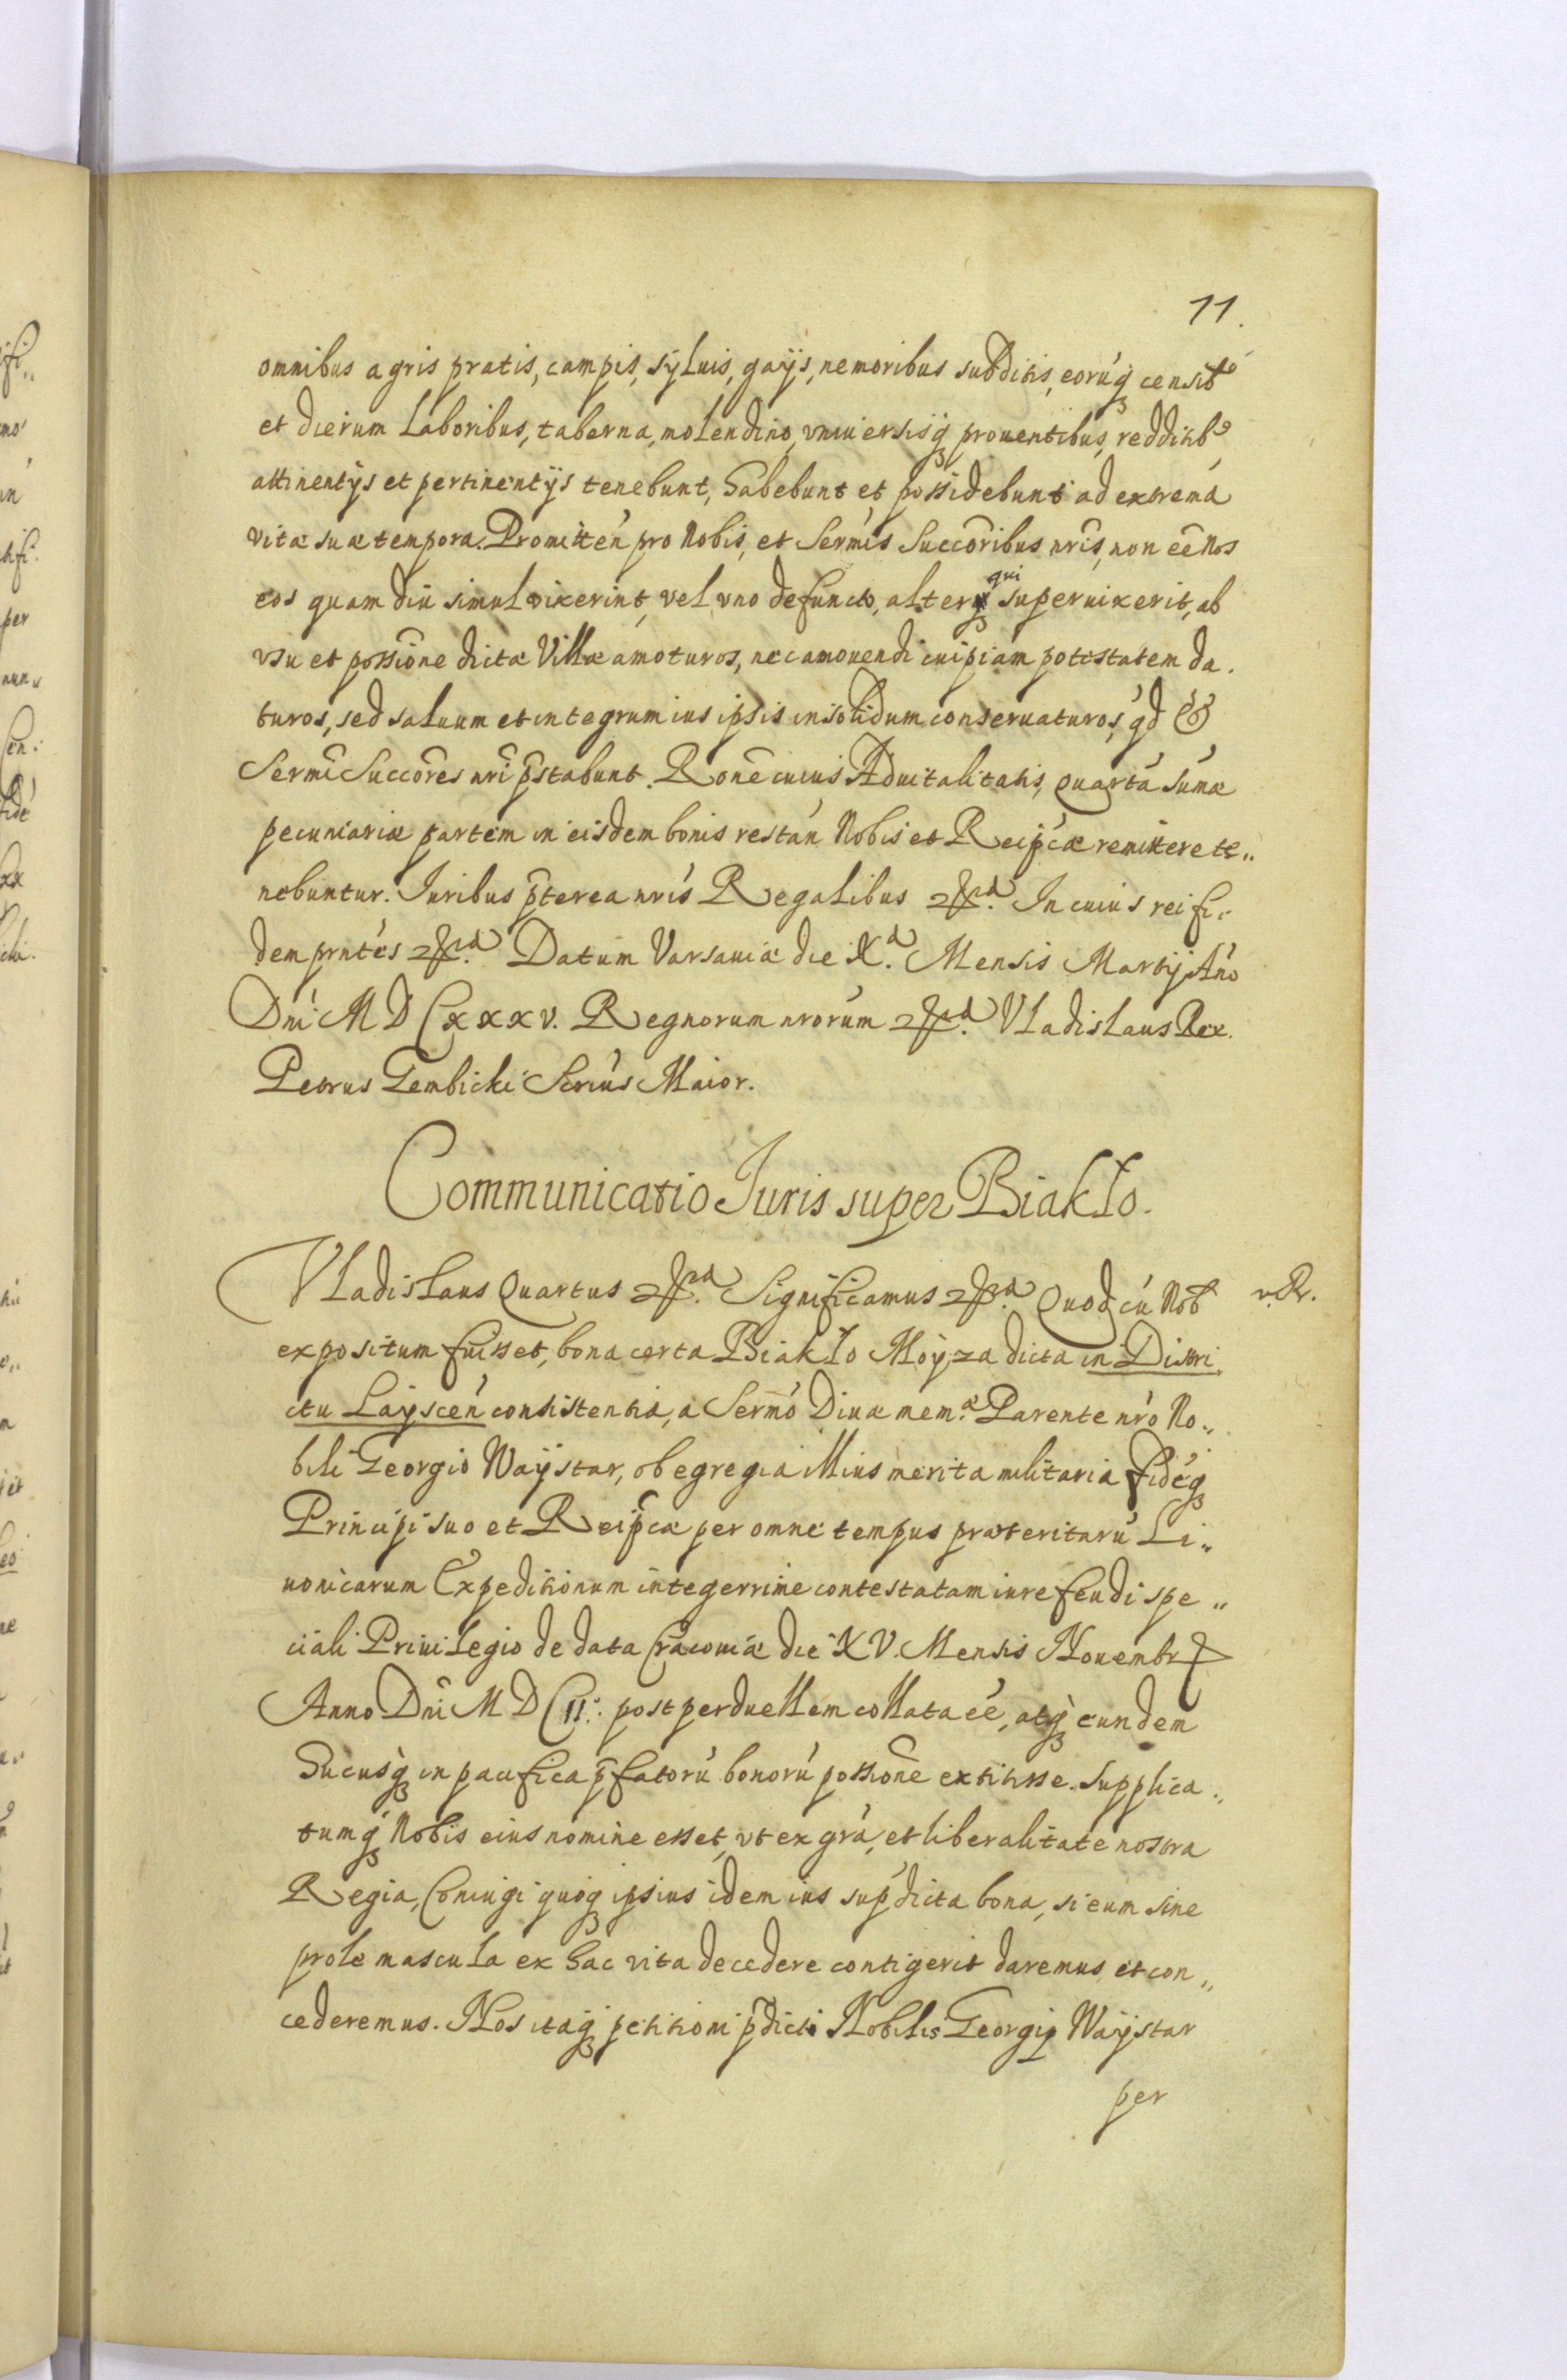 11.
omnibus agris pratis, campis, syluis, gaÿs, nemoribus subditis, eorúq censib9
et dierum laboribus, taberna, molendino, vniuersisq prouentibus, redditib9
attinentÿs et pertinentÿs tenebunt, habebunt et possidebunt ad extrema
vitæ suæ tempora. Promitteń pro Nobis, et Sermis Succoribus nris, non eē Nos
eos quam diu simul vixerint, vel vno defuncto, alterq qui superuixerit, ab
vsu et possione dictæ Villæ amoturos, nec amouendi cuipiam potestatem da.
turos, sed saluum et integrum ius ipsis insolidum conseruaturos, qd &
Sermi Succores nri pstabunt. Rone cuius Aduitalitatis, quartá Sumæ
pecuniariæ partem in eisdem bonis restań Nobis et Reipcæ remittere te„
nebuntur. Iuribus pterea nris Regalibus etc. In cuius rei fi„
dem prntes etc. Datum Varsauiæ die X.a Mensis Martÿ Ańo
Dni M D Cxxxv. Regnorum nrorum etc. Vladislaus Rex.
Petrus Gembicki Scrius Maior.
Communicatio Iuris super Biakło.
Vladislaus Quartus etc. Significamus etc. Quod cú Nob
v. R.
expositum fuisset, bona certa Biakło Moyza dicta in Distri„
ctu Layscen consistentia, a Sermo Diuæ mem.æ Parente nro No„
bili Georgio Waÿstar, ob egregia illius merita militaria fidéq
Principi suo et Reipcæ per omne tempus præteritarú Li„
uonicarum Expeditionum integerrime contestatam iure feudi spe„
ciali Priuilegio de data Cracouiæ die XV. Mensis Nouembr
Anno Dni M D CII. post perduellem collata eē, atq eundem
hucusq in pacifica pfatorú bonorú possione extitisse. Supplica„
tumq Nobis eius nomine esset, vt ex gra, et liberalitate nostra
Regia, Coniugi quoq ipsius idem ius sup dicta bona, si eum sine
prole mascula ex hac vita decedere contigerit daremus et con„
cederemus. Nos itaq petitioni pdicti Nobilis Georgÿ Waÿstar
per